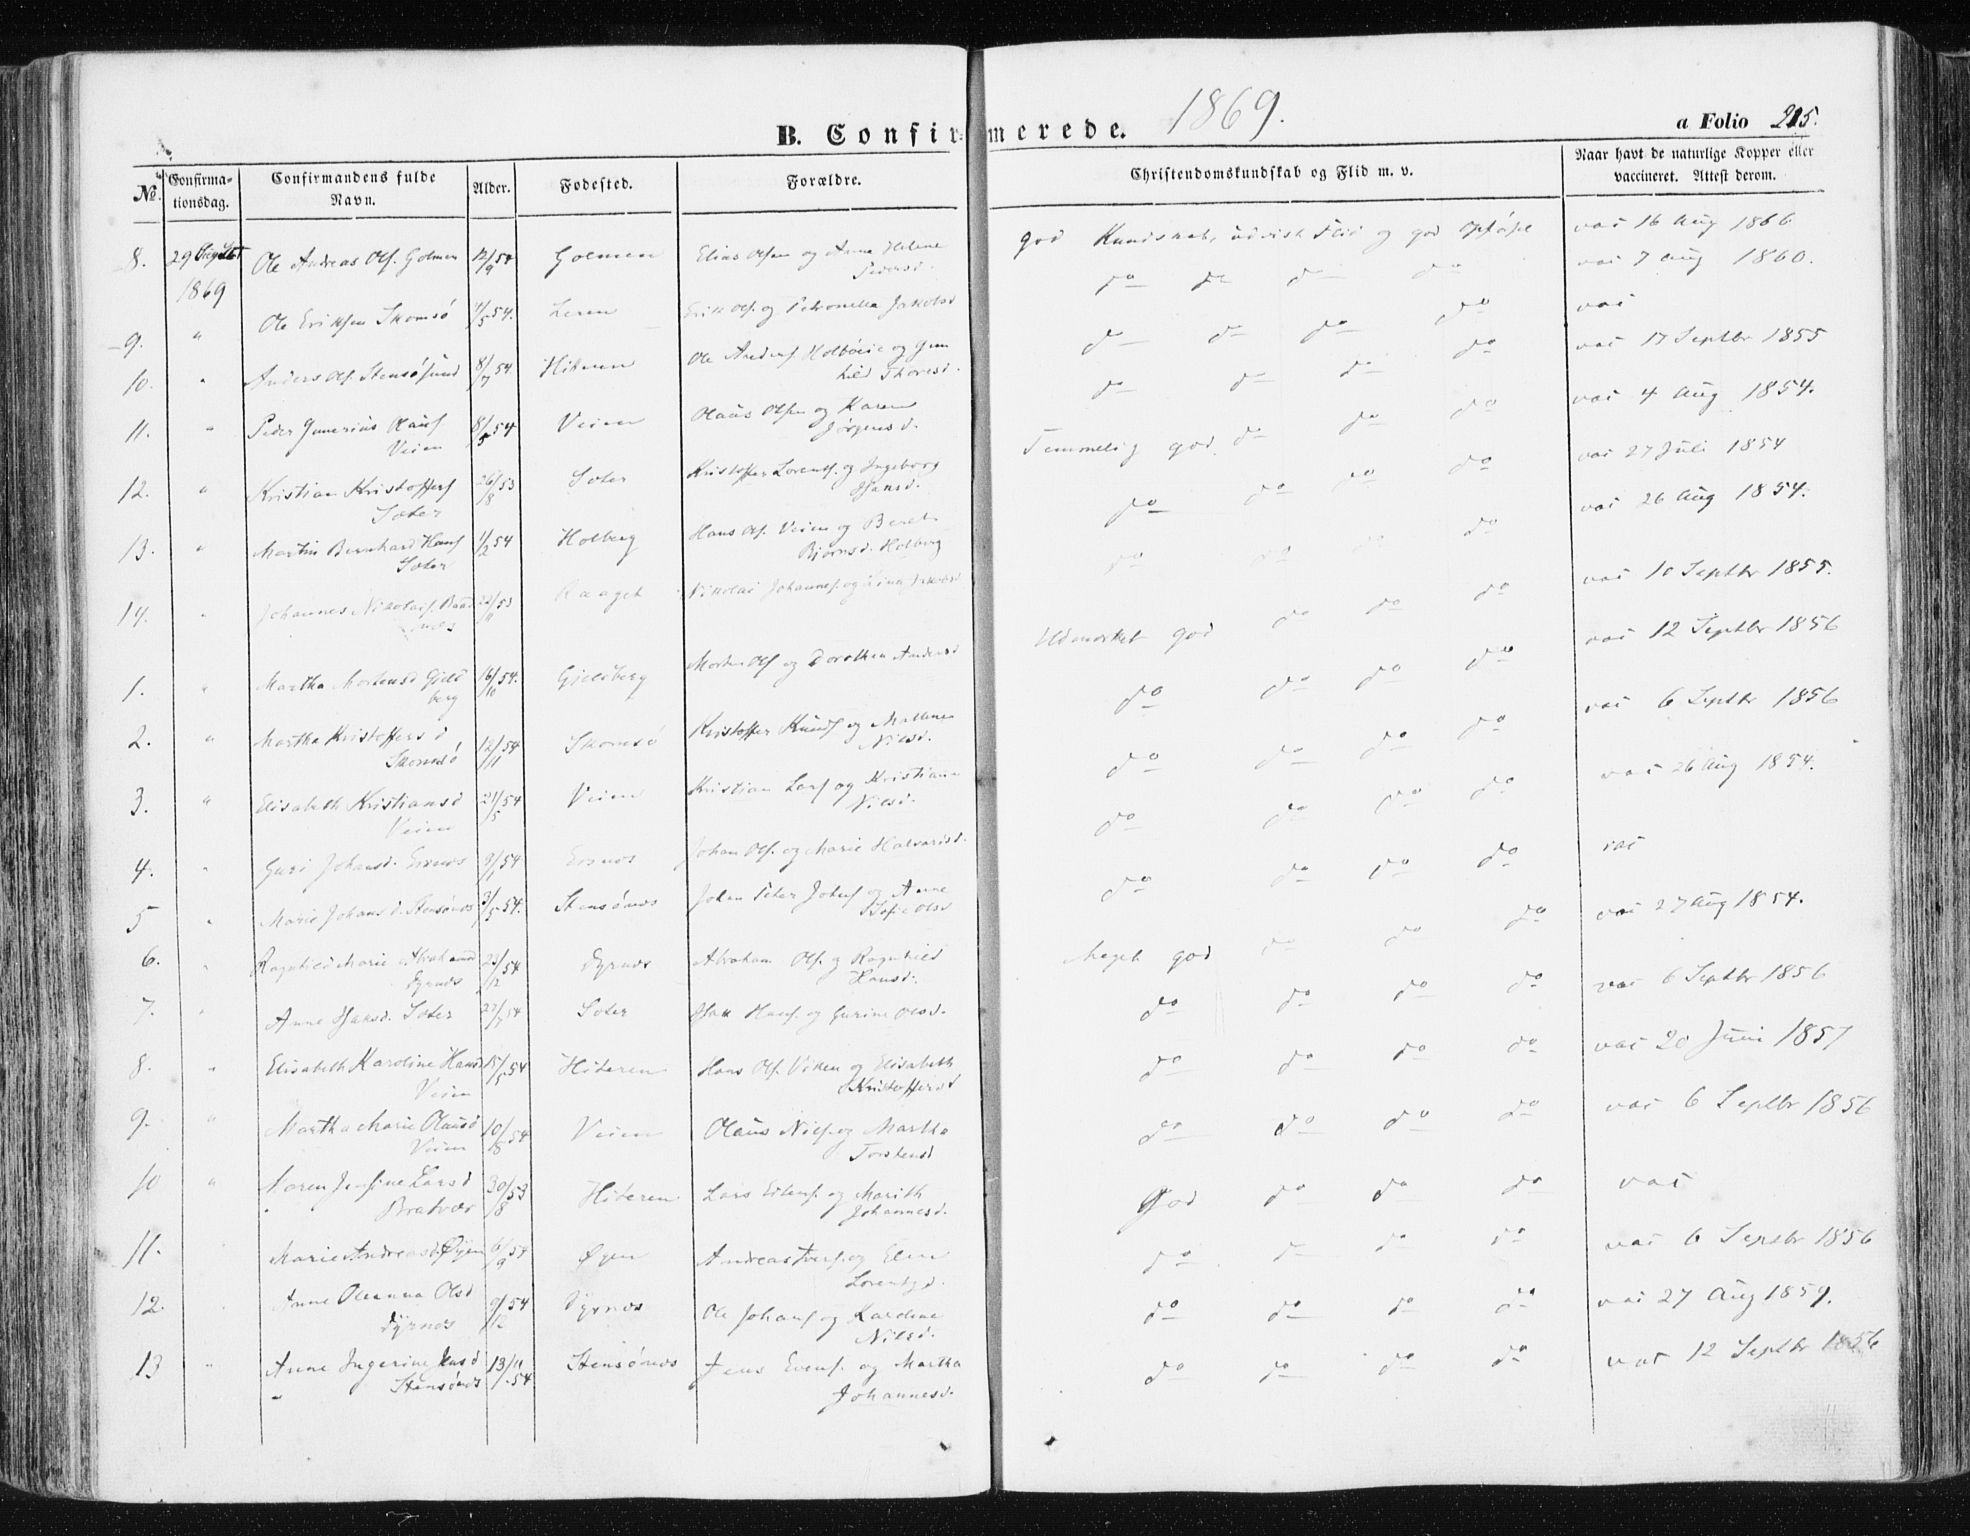 B. Confirmerede. 1869. a Folio 215.
No. Confirmationsdag. Confirmandens fulde Navn. Alder. Fødested. Forældre. Christendomskundskab og Flid m. v. Naar havt de naturlige Kopper eller vaccineret. Attest derom.
8. 29 August 1869 Ole Andreas Ols. Golmen 12/9 54 Golmen Elias Olsen og Anne Helene Pedersd. god Kundskab, udvist Flid og god Opførsel vac 16 Aug 1866
9. " Ole Eriksen Skomsö 4/5 54. Leren Erik Ols. og Petronella Jakobsd do do do do vac 7 Aug 1860.
10. " Anders Ols. Stensösund 8/7 54. Hiteren Ole Anders. Holböeie og Gunhild Thoresd. do do do do vac
11. " Peder Gunerius Olaus. Veien 8/5 54 Veien Olaus Olsen og Karen Jörgensd. do do do do vac 17 Septbr 1855
12. " Kristian Kristoffers. Soter 26/8 53 Soter Kristoffer Lorents. og Ingeborg Hansd. Temmelig god. do do do vac 4 Aug 1854.
13. " Martin Bernhard Hans. Soter 1/2 54 Holberg Hans Ols. Veien og Beret Björnsd. Holberg do do do do vac 27 Juli 1854
14. " Johannes Nikolais. 22/11 53 Nikolai Johannes. og Jakobsd do do do do vac 26 Aug 1854.
1. " Martha Mortensd Gjeldberg 16/10 54. Gjeldberg Morten Ols. og Dorothea Andersd Udmerket god do do do vac 10 Septbr 1855.
2. " Martha Kristoffersd Skomsö 12/11 54 Skomsö Kristoffer Knuds. og Malene Nilsd. do do do do vac 12 Septbr 1856
3. " Elisabeth Kristiansd Veien 21/5 54 Veien Kristian Lars. og Kristiane Nilsd. do do do do vac 6 Septbr 1856
4. " Guri Johansd. 54 Johan Ols. og Marie Halvorsd. do do do do vac 26 Aug 1854.
5 " Marie Johansd. Stensönes 3/5 54. Stensönes Johan Peter Johs. og Anne Sofie Olsd do do do do vac
6. " Ragnhild Marie Abrahamsd Dyrnes 23/12 54 Dyrnes Abraham Ols. og Ragnhild Hansd. Meget god do do do vac 27 Aug 1854.
7. " Anne Hansd. Soter 22/7 54 Soter Hans. og Gurine Olsd. do do do do vac 6 Septbr 1856
8. " Elisabeth Karoline Hansd Veien 15/5 54 Hiteren Hans Ols. Viken og Elisabeth Kristoffersd do do do do vac 20 Juni 1857
9. " Martha Marie Olausd Veien 10/8 54 Veien Olaus Nils. og Martha Torstensd do do do do vac 6 Septbr 1856
10 " Maren Jensine Larsd Bratvær 30/8 53 Hiteren Lars Eilers. og Marith Johannesd. God do do do vac
11. Marie Andreasd. Öyen 6/9 54 Öyen Andreas Ivers. og Elen Lorentsd. do do do do vac 6 Septbr 1856
12. Anne Oleanna Olsd Dyrnes 9/12 54 Dyrnes Ole Johans. og Karoline Nilsd. do do do do vac 27 Aug 1859.
13 " Anne Ingerine Jensd Stensönes 13/11 54 Stensönes Jens Evens. og Martha Johannesd. do do do do vac 12 Septbr 1856